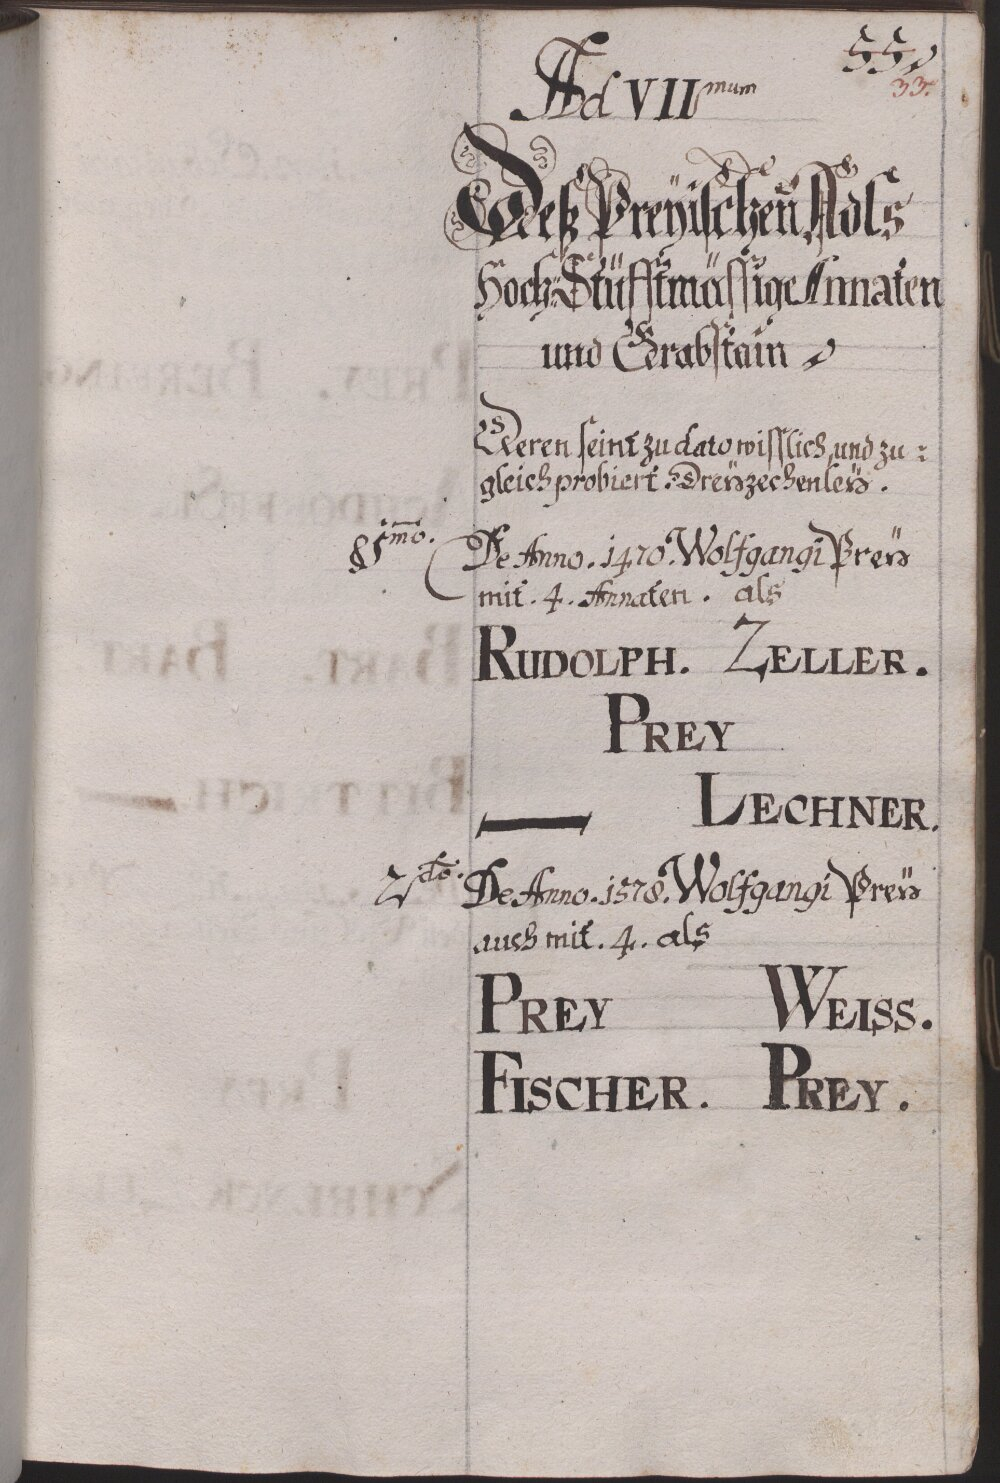 550
33.
Ad VII mum
Deß Preÿischen Adls
Hoch-Stüfftmässige Annaten
und Grabstain
Deren seint zu dato wisslich, und zu:
gleich probiert. Dreÿzechenleÿ.
1mo. De Anno. 1470. Wolfgangi Preÿ
mit. 4. Annaten. als
RUDOLPH. ZELLER.
PREY
— LECHNER.
2do: De Anno. 1578. Wolfgangi Preÿ
auch mit. 4. als
PREY WEISS.
FISCHER. PREY.